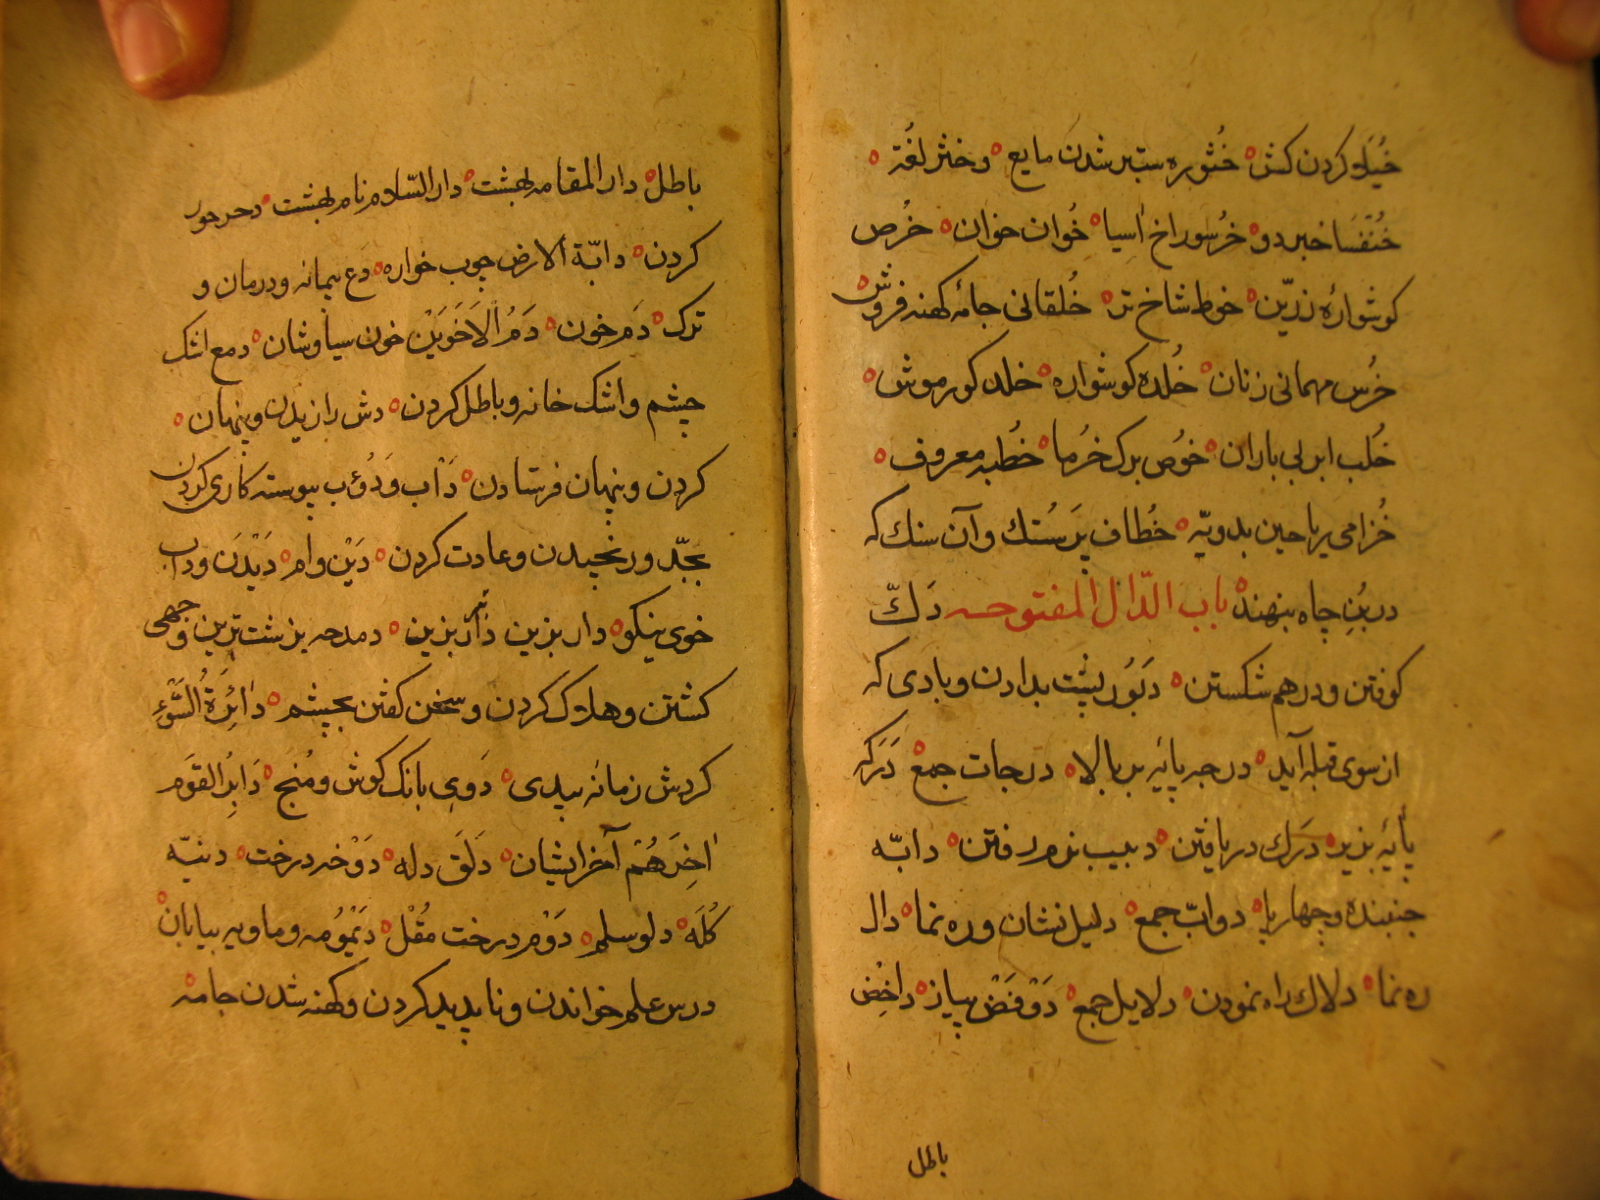 خُیَلا کردن کش خُثوره ستبر شدن مایع و خثر لغة
خُنْفَسا خبزدو خُر سوراخ اسیا خُوان خوان خُرص
کوشوارهٔ زرّین خوط شاخ تر خُلقانی جامهٔ کهنه فروش
خُرس مهمانی زنان خُلده کوشواره خلد کور موش
خُلب ابر بی باران خوُص برک خرُما خُطبه معروف
خُزامی ریاحین بدویّه خُطاف پَرَستُك وآن سنك که
در بُنِ چاه بنهند باب الدّال المفتوحه دَكّ
کوفتن ودرهم شکستن دَبَوُر پشت بدادن وبادی که
از سوی قبله آید درجه پایهٔ بر بالا درجات جمع دَرَکه
پایهٔ بزیر دَرَك دریافتن دبیب نرم رفتن دابّه
جنبنده وچهارپا دوابّ جمع دلیل نشان وره نما دال
ره نما دلالت راه نمودن دلایل جمع دَوْفَصْ پیاز داحِض
باطل
باطل دار المقامه بهشت دار السّلام نام بهشت دحر خوار
کردن دابّة الارض چوب خواره دع پیمانه ودرمان و
ترک دَم خون دَمُ الاَخَوَیْن خون سیاوشان دمع اشک
چشم واشک خانه وباطل کردن دسّ رازیدن وپنهان
کردن وپنهان فرستادن دَأب وَدُؤب پیوسته کاری کردن
بجدّ ورنجیدن وعادت کردن دَیْن وام دَیْدَن وداب
خوی نیکو دار بزین دار بزین دمدمه بزشت ترین وجهی
کشتن وهلاک کردن وسخن کفتن بخشم دائِرَةُ السَّوْءِ
کردش زمانه ببدی دَوِی بانک کوش ومُنج دَابِرُ القَوَم
اخِرَهُمْ آخر ایشان دَلَق دله دَوْحه درخت دنیّه
کُلَه دلو سلم دَوْم درخت مُقْل دَیْمُومه وماویه بیابان
درس علم خواندن وناپدید کردن وکهنه شدن جامه